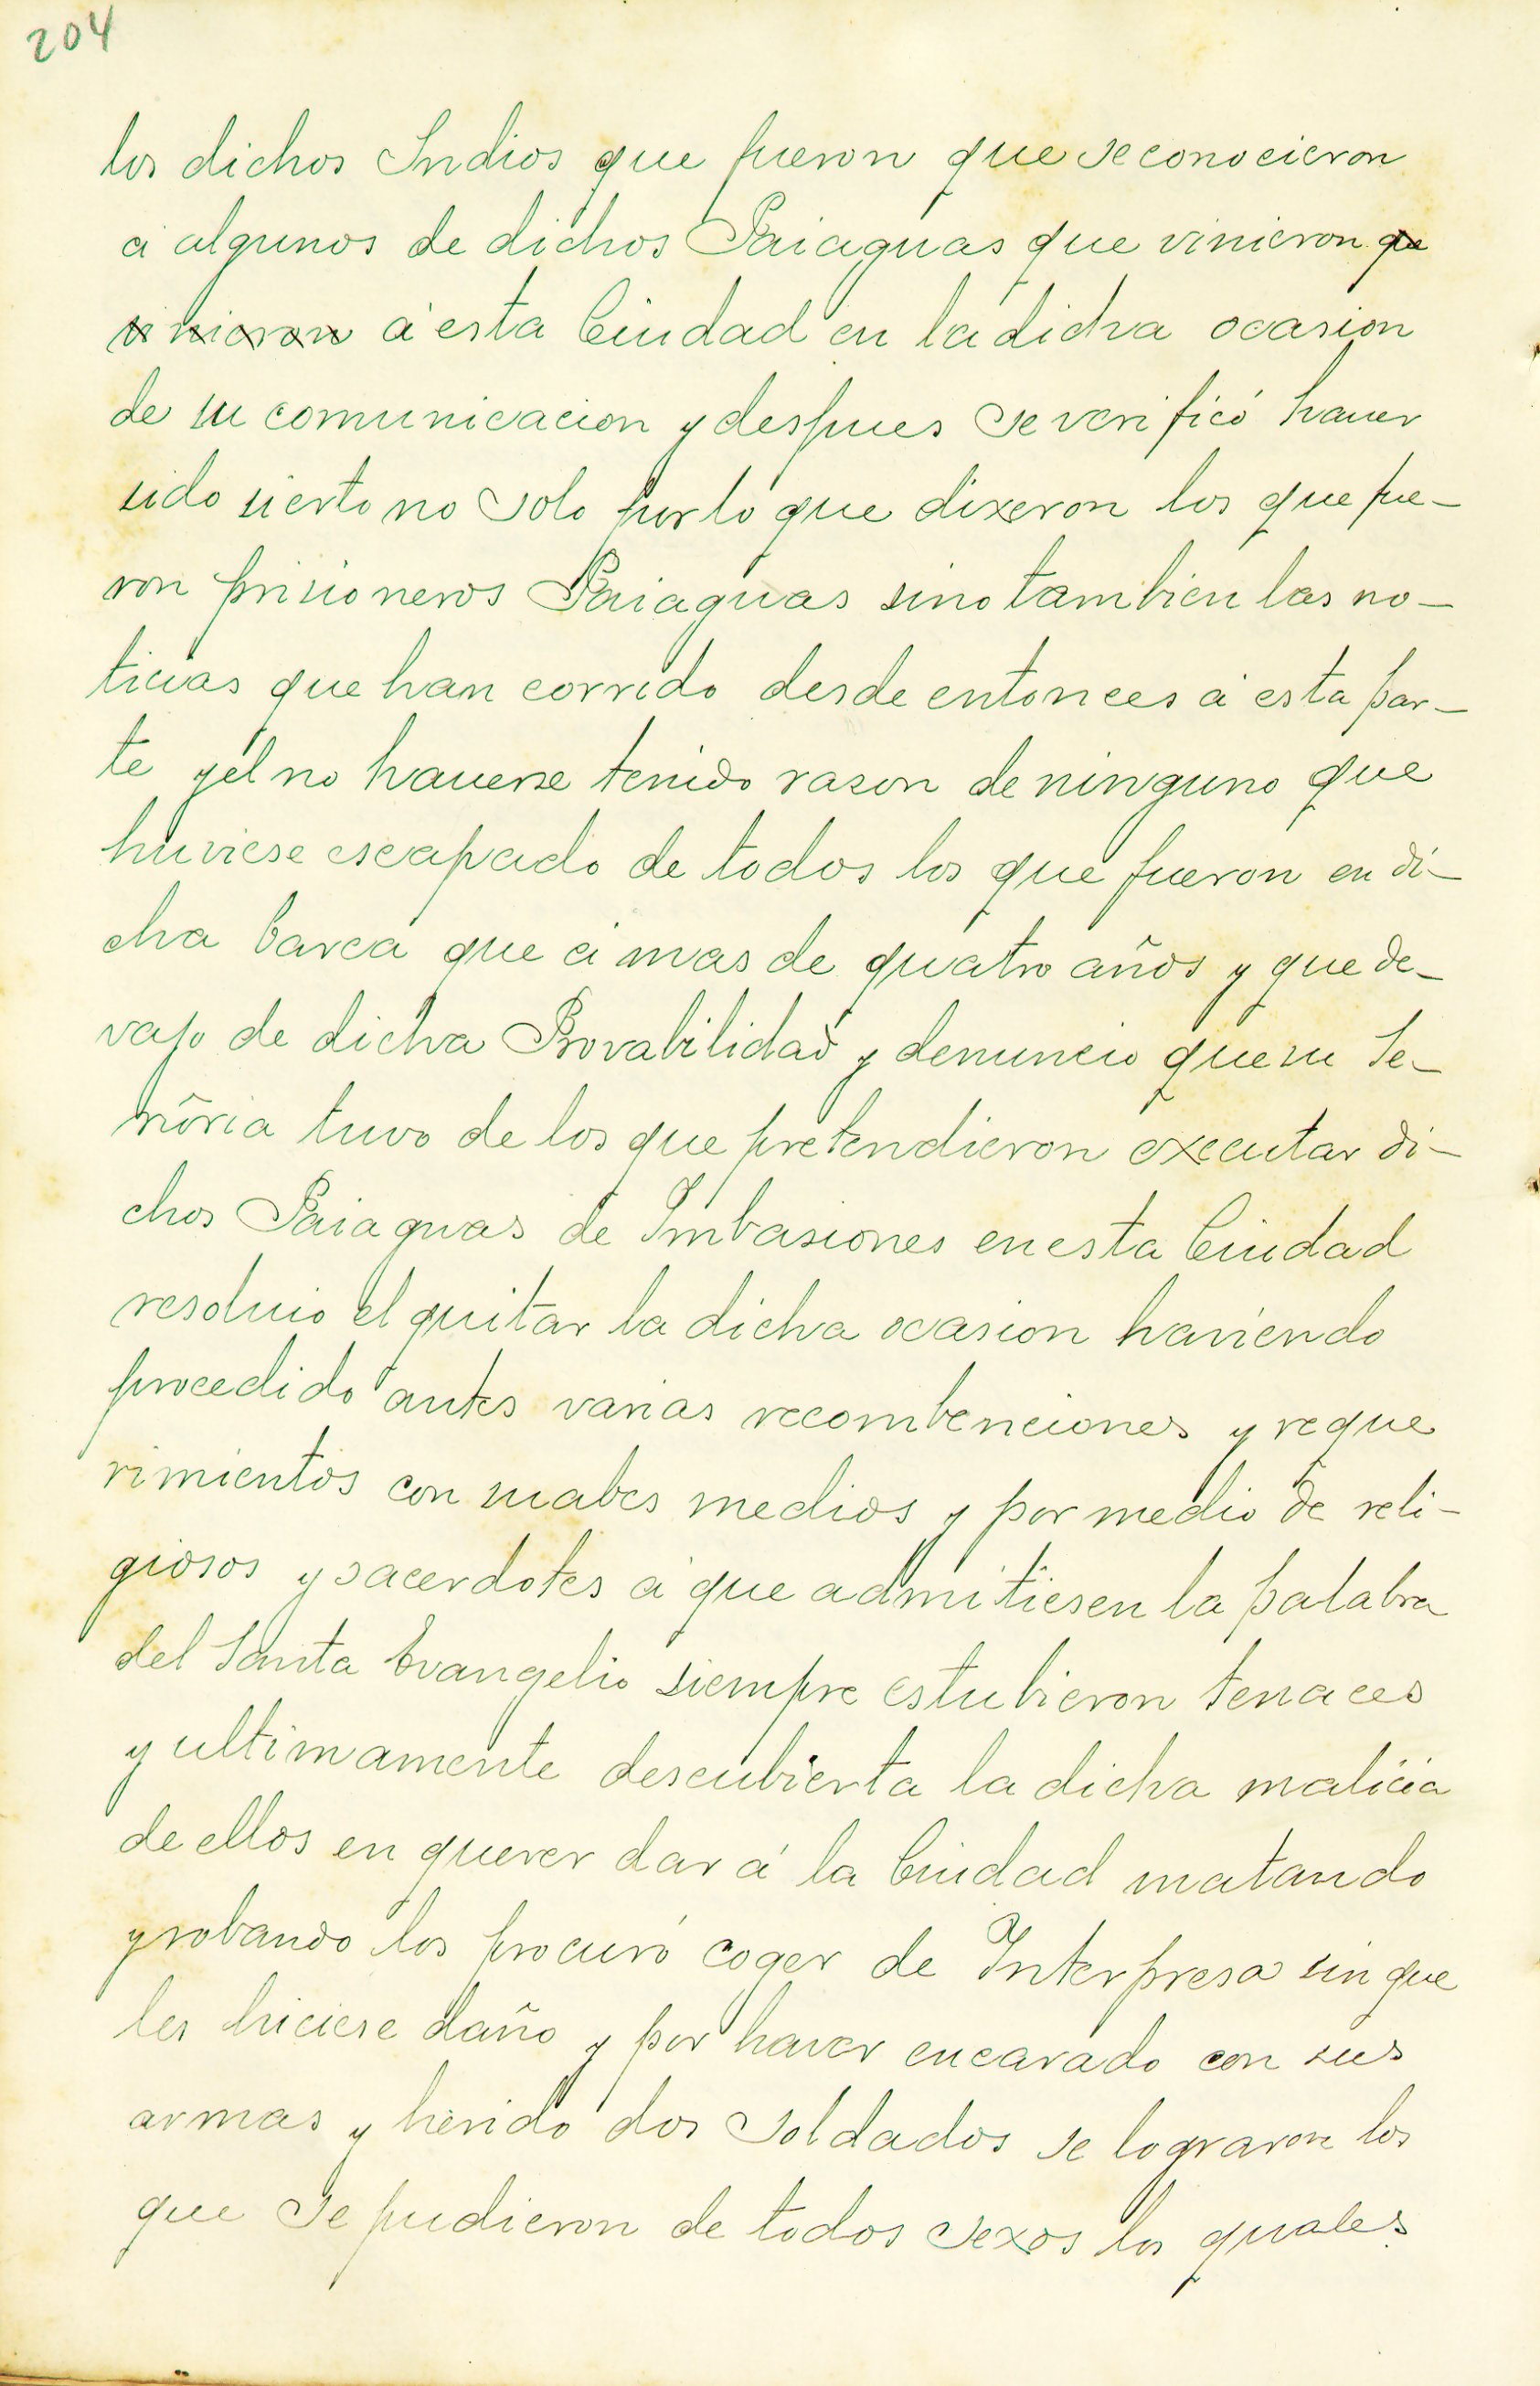 204
los dichos Indios que fueron que se conocieron
á algunos de dichos Paiaguas que vinieron que
vinieron á esta Ciudad en la dicha ocasion
de su comunicacion y despues se verificó hauer
sido sierto no solo por lo que dixeron los que fue-
ron prisioneros Paiaguas sino tambien las no-
ticias que han corrido desde entonces á esta par-
te y el no hauerse tenido rason de ninguno que
huviese escapado de todos los que fueron en di-
cha barca que á mas de quatro años y que de-
vajo de dicha Provabilidad y denuncio que su Se-
ñoria tuvo de los que pretendieron executar di-
chos Paiaguas de Imbasiones en esta Ciudad
resoluio el quitar la dicha ocasion haviendo
procedido antes varias recombenciones y reque
rimientos con suabes medios y por medio de reli-
giosos y sacerdotes á que admitiesen la palabra
del Santa Evangelio siempre estubieron tenaces
y ultimamente descubierta la dicha malicia
de ellos en querer dar á la Ciudad matando
y robando los procuró coger de Interpresa sin que
les hiciese daño y por haver encarado con sus
armas y herido dos Soldados se lograron los
que se pudieron de todos sexos los quales